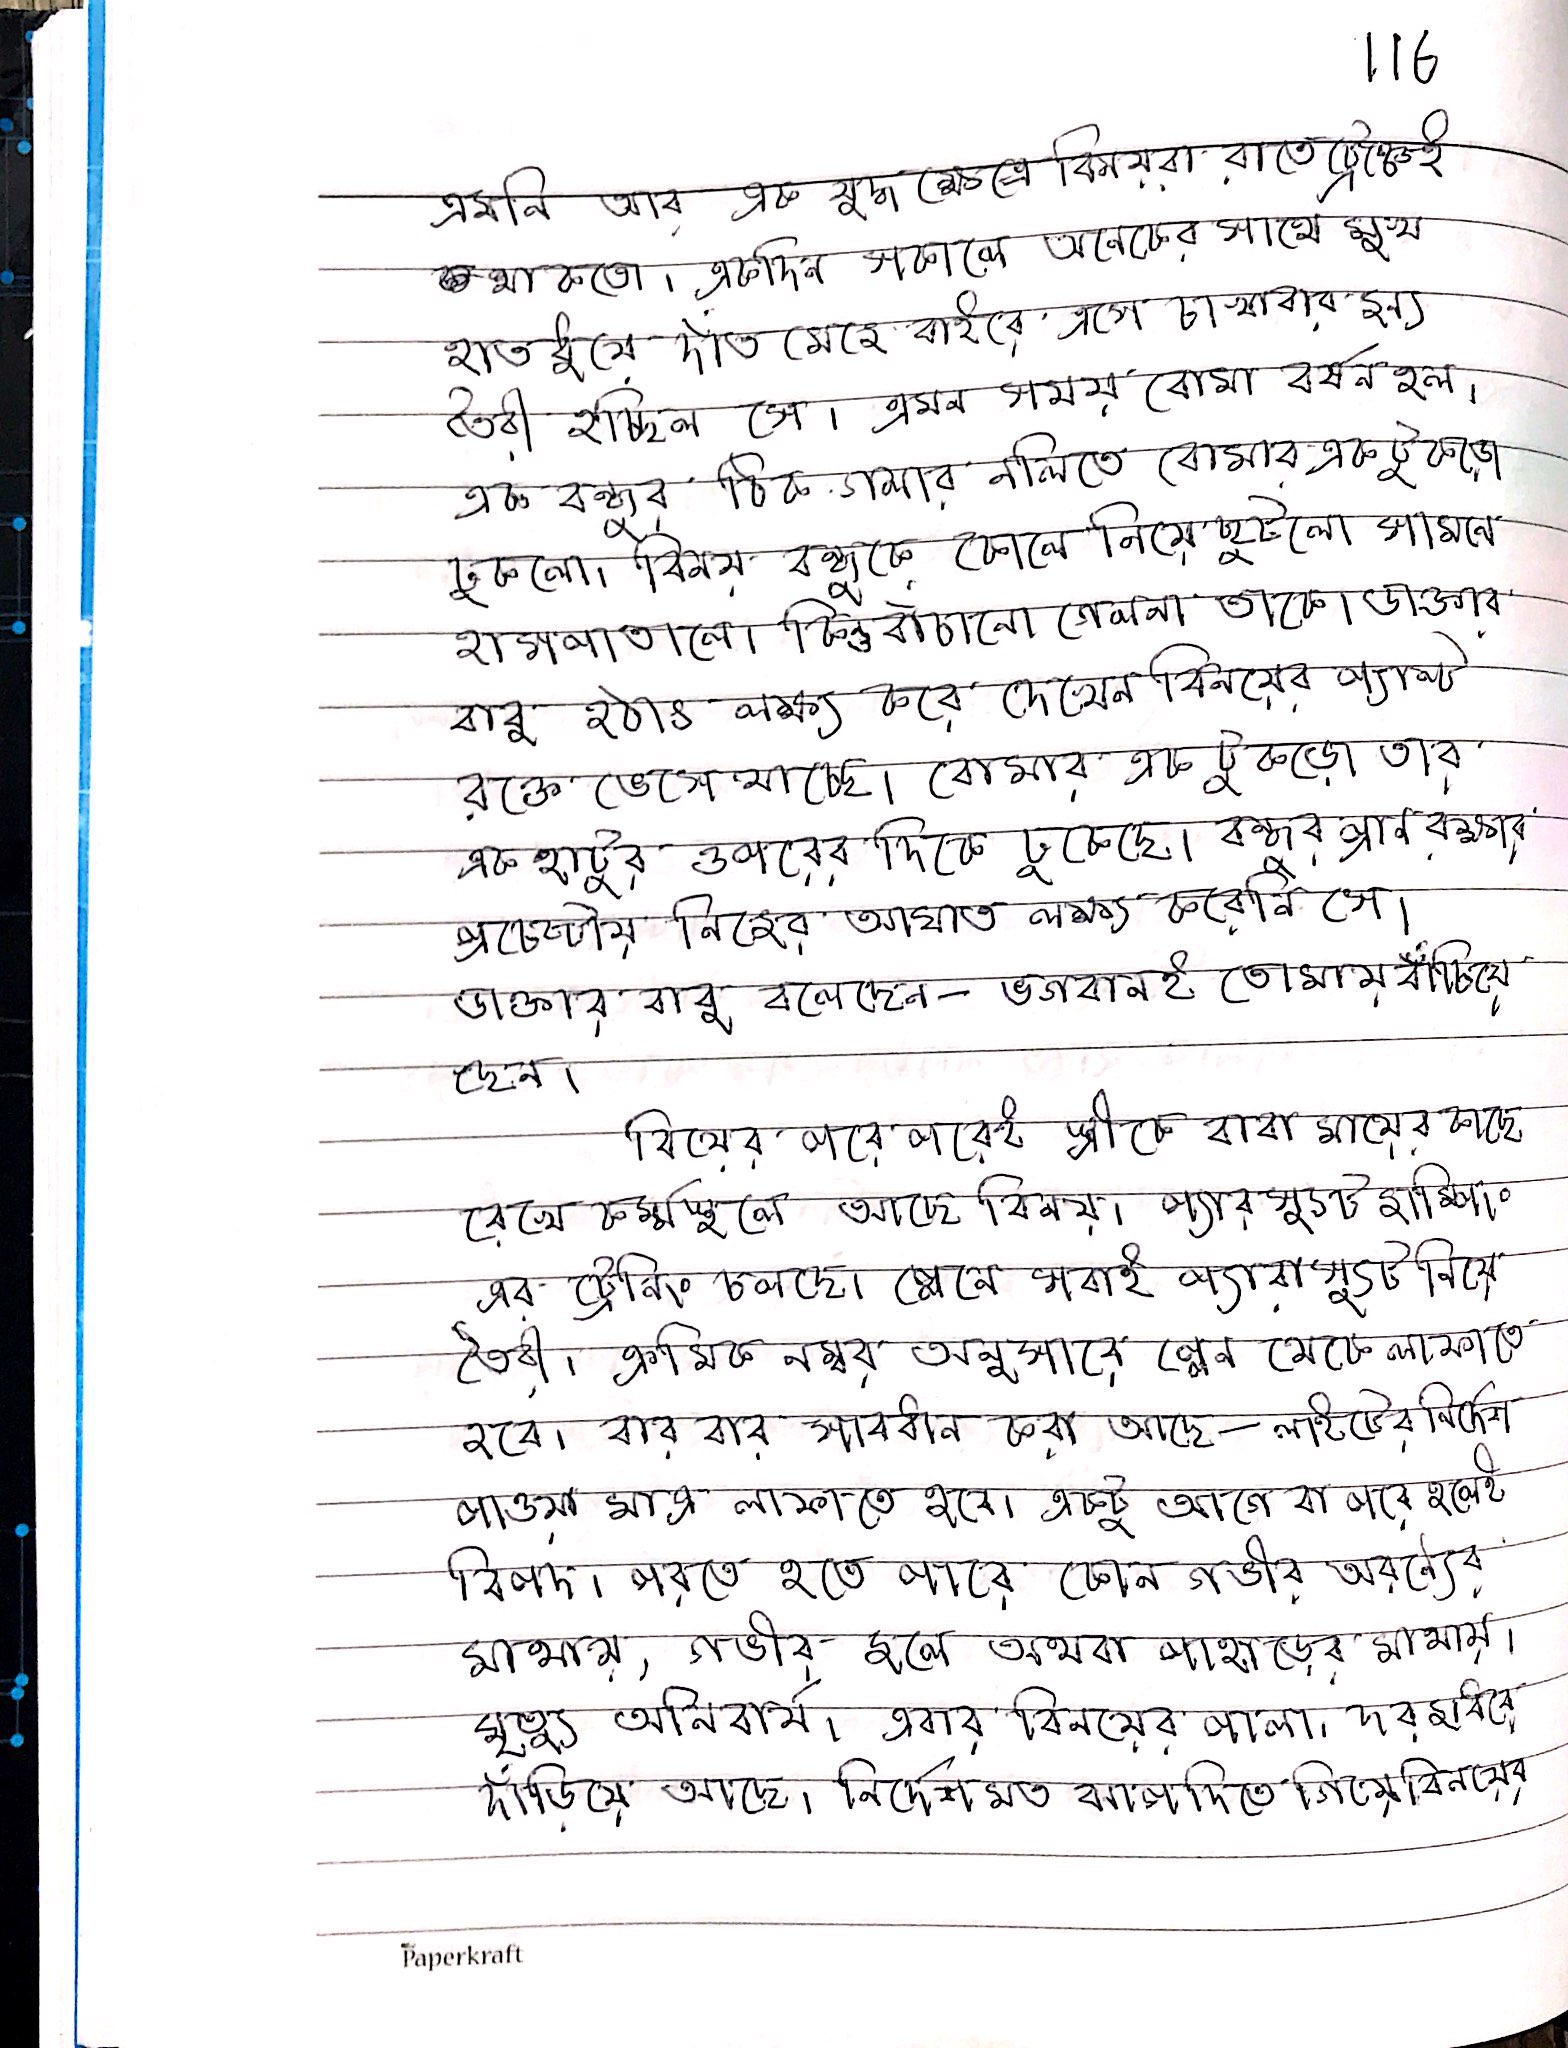 116
এমনি আর এক যুদ্ধ ক্ষেত্রে বিনয়রা রাতে ট্রেঞ্চেই
থাকতো। একদিন সকালে অনেকের সাথে মুখ
হাত ধুয়ে দাঁত মেজে বাইরে এসে চা খাবার জন্য
তৈরী হচ্ছিল সে। এমন সময় বোমা বর্ষন হল।
এক বন্ধুর ঠিক গলার নলিতে বোমার এক টুকড়ো
ঢুকলো। বিনয় বন্ধুকে কোলে নিয়ে ছুটলো সামনে
হাসপাতালে। কিন্তু বাঁচানো গেলনা তাকে। ডাক্তার
বাবু হঠাৎ লক্ষ্য করে দেখেন বিনয়ের প্যান্ট
রক্তে ভেসে যাচ্ছে। বোমার এক টুকড়ো তার
এক হাটুর ওপরের দিকে ঢুকেছে। বন্ধুর প্রান রক্ষার
প্রচেষ্টায় নিজের আঘাত লক্ষ্য করেনি সে।
ডাক্তার বাবু বলেছেন – ভগবানই তোমায় বাঁচিয়ে
ছেন।
বিয়ের পরে পরেই স্ত্রীকে বাবা মায়ের কাছে
রেখে কর্মস্থলে আছে বিনয়। প্যারসুট জাম্পিং
এর ট্রেনিং চলছে। প্লেনে সবাই প্যারাসুট নিয়ে
তৈরী। ক্রমিক নম্বর অনুসারে প্লেন থেকে লাফাতে
হবে। বার বার সাবধান করা আছে – লাইটের নির্দেশ
পাওয়া মাত্র লাফাতে হবে। একটু আগে বা পরে হলেই
বিপদ। পরতে হতে পারে কোন গভীর অরন্যের
মাথায়, গভীর জলে অথবা পাহাড়ের মাথায়।
মৃত্যু অনিবার্য। এবার বিনয়ের পালা। দরজা ধরে
দাঁড়িয়ে আছে। নির্দেশ মত ঝাপ দিতে গিয়ে বিনয়ের
Paperkraft